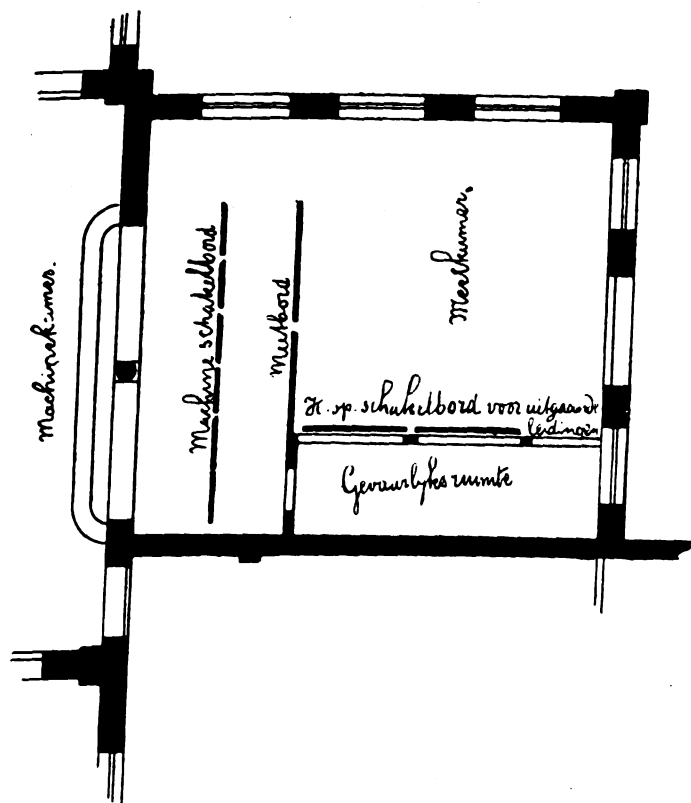 Machinekamer.
Machine schakelbord
Meetbord
Meetkamer.
H. sp. schakelbord voor uitgaande
leidingen
Gevaarlyke ruimte